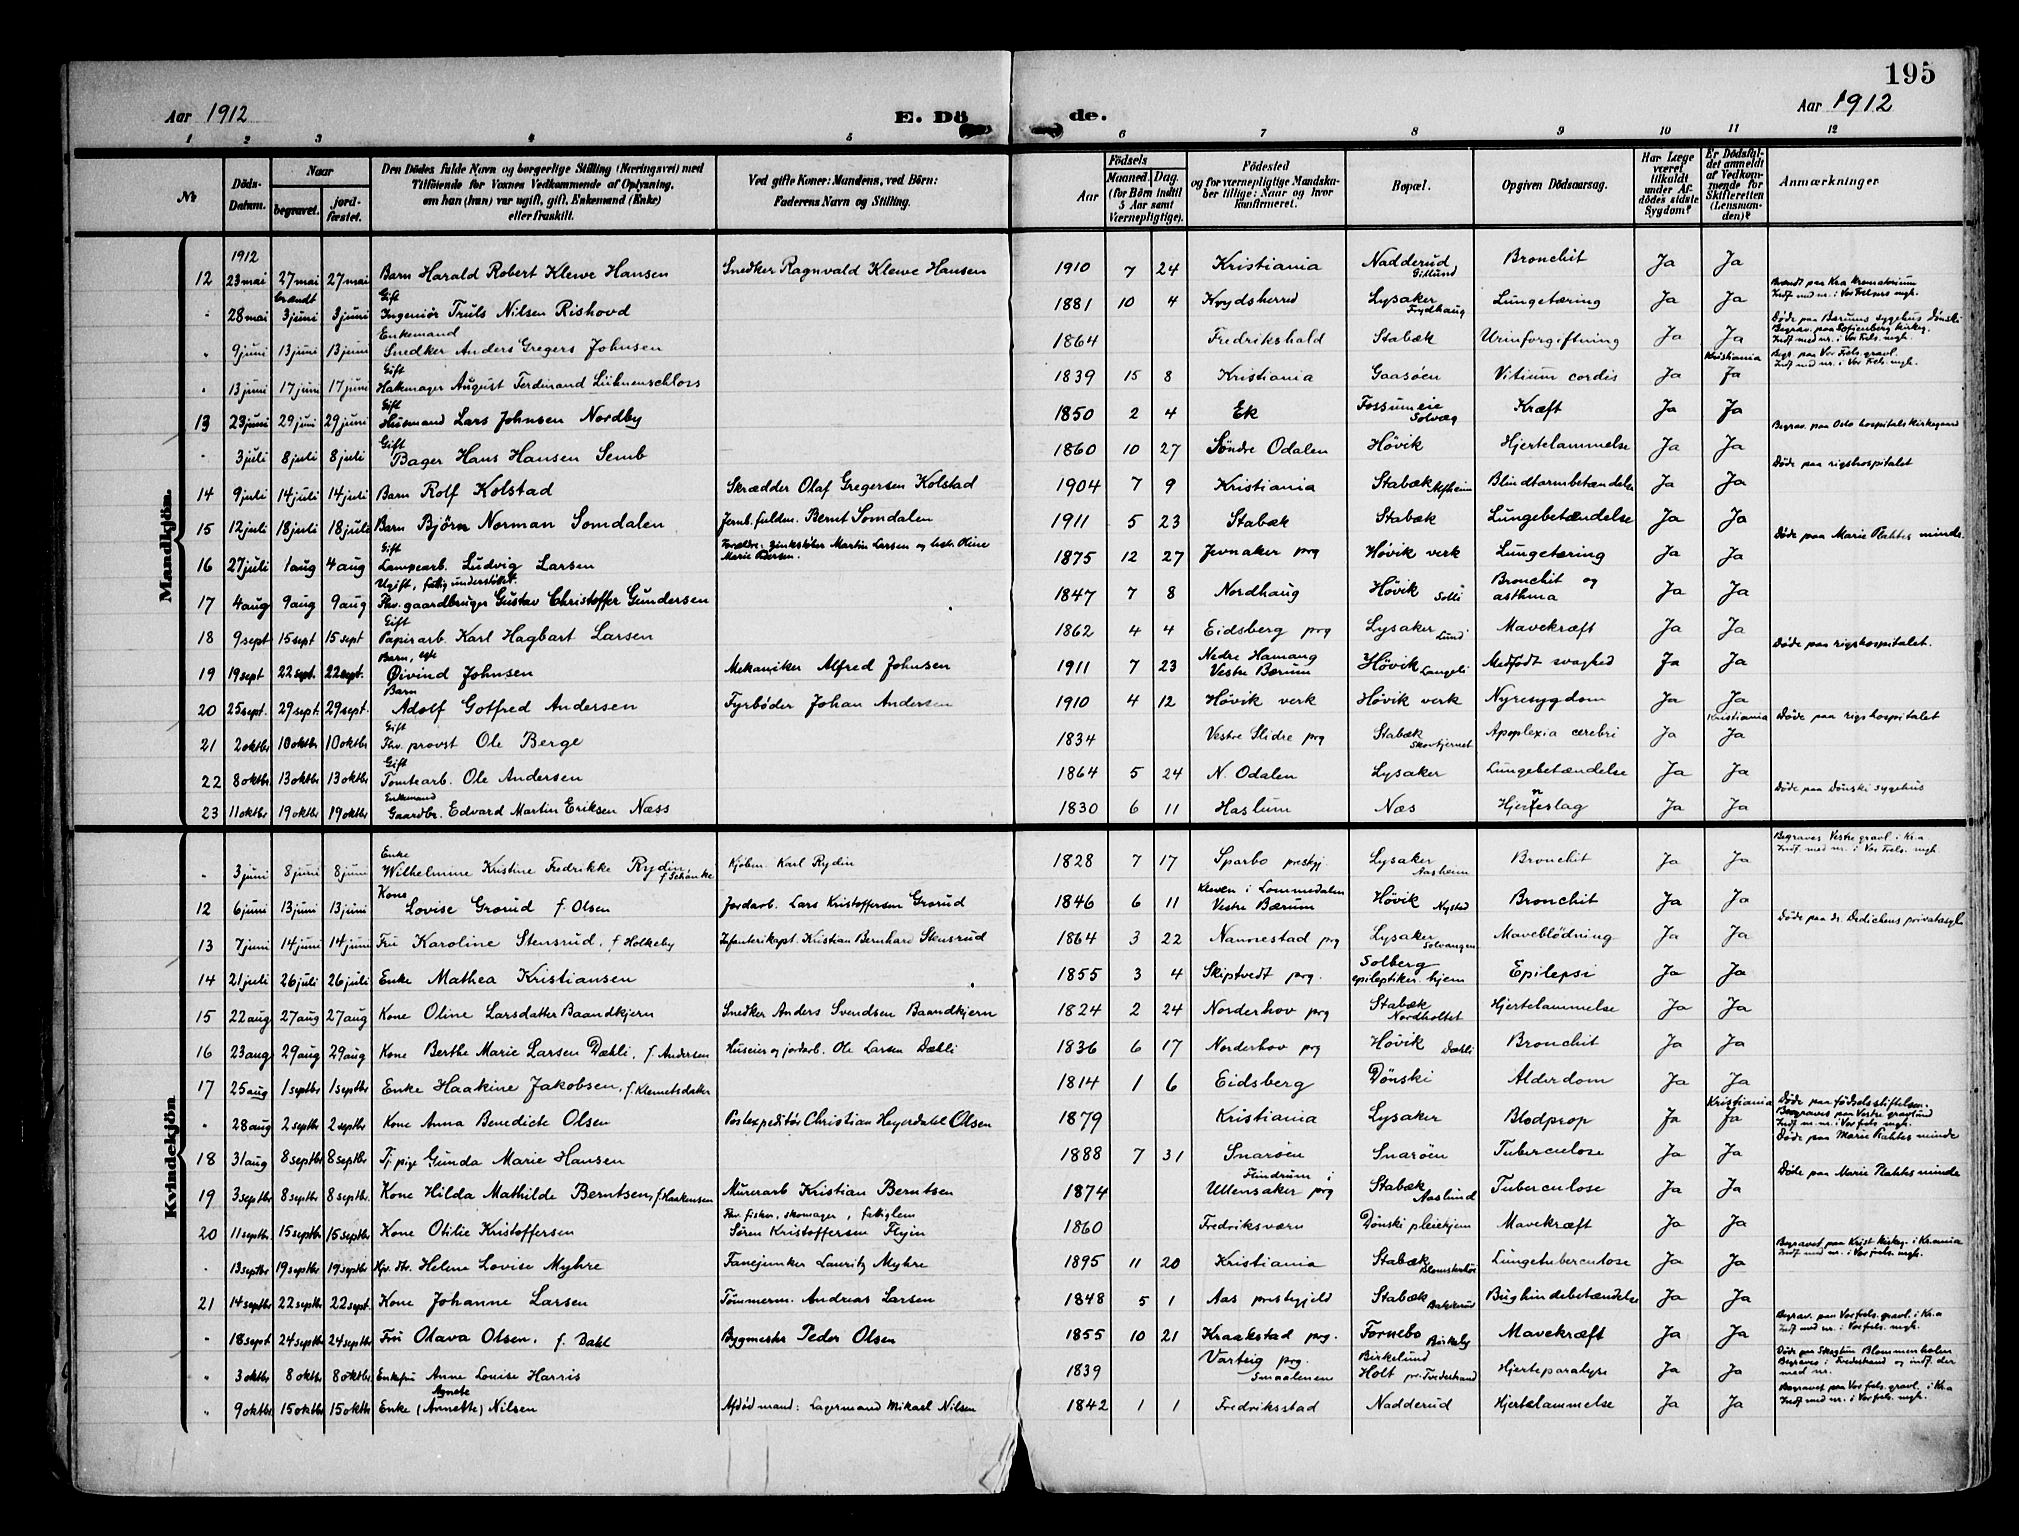 195
Aar 1912
E. Dö de.
Aar 1912
1 2 3 4 5 6 7 8 9 10 11 12
№
Döds-Datum.
Naar
begravet.
jordfæstet.
Den Dödes fulde Navn og borgerlige Stilling (Næringsvei) med
Tilföiende for Voxnes Vedkommende af Oplysning,
om han (hun) var ugift, gift, Enkemand (Enke)
eller fraskilt.
Ved gifte Koner: Mandens, ved Börn:
Faderens Navn og Stilling.
Födsels
Aar
Maaned. Dag.
(for Börn indtil
5 Aar samt
Værnepligtige).
Födested
og for værnepligtige Mandskaber tillige: Naar og hvor
konfirmeret.
Bopæl.
Opgiven Dödsaarsag.
Har Læge
været
tilkaldt
under Afdödes sidste
Sygdom?
Er Dödsfaldet anmeldt
af Vedkommende for
Skifteretten
(Lensmanden)?
Anmærkninger
Mandkjön.
1912
12 23 mai 27 mai 27 mai Barn Harald Robert Klewe Hansen Snedker Ragnvald Klewe Hansen 1910 7 24 Kristiania Nadderud, Gitlund Bronchit Ja Ja
" 28 mai brændt 3 juni 3 juni Gift Ingeniør Truls Nilsen Rishovd 1881 10 4 Krydsherred Lysaker Frydhaug Lungetæring Ja Ja Brændt paa Kra Krematorium Indf. med nr. i Vor Frelsers mgh.
" 9 juni 13 juni 13 juni Enkemand Snedker Anders Gregers Johnsen 1864 Fredrikshald Stabæk Urinforgiftning Ja Ja Døde paa Bærums sygehus Dønski Begrav. paa Sofienberg kirkeg. Indf med nr. i Vor Frels. mgh.
" 13 juni 17 juni 17 juni Gift Hatmager August Ferdinand Lühnenschloss 1839 15 8 Kristiania Gaasøen Vitium cordis Ja Kristiania Ja Begr. paa Vor Frels. gravl. Indf med nr. i Vor Frels. mgh.
13 23 juni 29 juni 29 juni Gift Husmand Lars Johnsen Nordby 1850 2 4 Ek Fossumeie Solvæg Kræft Ja Ja
" 3 juli 8 juli 8 juli Gift Bager Hans Hansen Semb 1860 10 27 Søndre Odalen Høvik Hjertelammelse Ja Ja Begrav. paa Oslo hospitalskirkegaard
14 9 juli 14 juli 14 juli Barn Rolf Kolstad Skrædder Olaf Gregersen Kolstad 1904 7 9 Kristiania Stabæk Alfheim Blindtarmbetændelse Ja Ja Døde paa rigshospitalet
15 12 juli 18 juli 18 juli Barn Bjørn Norman Somdalen Jernb. fuldm. Bernt Somdalen 1911 5 23 Stabæk Stabæk Lungebetændelse Ja Ja
16 27 juli 1 aug 4 aug Gift Lampearb. Ludvig Larsen Forældre: Martin Larsen og Oline Marie Pedersen. 1875 12 27 Jevnaker prg Høvik verk Lungetæring Ja Ja Døde paa Marie Plahtes minde
17 4 aug 9 aug 9 aug Ugift, fattigunderstøttet. Fhv. gaardbruger Gustav Christoffer Gundersen 1847 7 8 Nordhaug Høvik Solli Bronchit og asthma Ja Ja
18 9 sept 15 sept 15 sept Gift Papirarb. Karl Hagbart Larsen 1862 4 4 Eidsberg prg Lysaker Lund Mavekræft Ja Ja
19 19 sept 22 sept. 22 sept. Barn, egte Øivind Johnsen Mekaniker Alfred Johnsen 1911 7 23 Nedre Hamang Vestre Bærum Høvik Langeli Medfødt svaghed Ja Ja Døde paa rigshospitalet.
20 25 sept. 29 sept. 29 sept. Barn Adolf Gotfred Andersen Fyrbøder Johan Andersen 1910 4 12 Høvik verk Høvik verk Nyresygdom Ja Ja
21 2 oktbr 10 oktbr 10 oktbr Gift Fhv. provst Ole Berge 1834 Vestre Slidre prg Stabæk Skovtjernet Apoplexia cerebri Ja Kristiania Ja Døde paa rigshospitalet
22 8 oktbr 13 oktbr 13 oktbr Gift Tomtearb. Ole Andersen 1864 5 24 N. Odalen Lysaker Lungebetændelse Ja Ja
23 11 oktbr 19 oktbr 19 oktbr Enkemand Gaardbr. Edvard Martin Eriksen Næss 1830 6 11 Haslum Næs Hjerteslag Ja Ja Døde paa Dønski sygehus
Kvindekjön
" 3 juni 8 juni 8 juni Enke Wilhelmine Kristine Fredrikke Rydin f. Schänke Kjøbm. Karl Rydin 1828 7 17 Sparbo prestgj. Lysaker Aasheim Bronchit Ja Ja Begraves Vestre gravl. i Kra Indf. med nr. i Vor Frels. mgh.
12 6 juni 13 juni 13 juni Kone Lovise Grorud f. Olsen Jordarb. Lars Kristoffersen Grorud 1846 6 11 Kleven i Lommedalen Vestre Bærum Høvik Nystad Bronchit Ja Ja
13 7 juni 14 juni 14 juni Fru Karoline Stensrud, f Holkeby Infanterikapt. Kristian Bernhard Stensrud 1864 3 22 Nannestad prg Lysaker Solvangen Maveblødning Ja Ja Døde paa dr. Dedichens privatasyl
14 21 juli 26 juli 26 juli Enke Mathea Kristiansen 1855 3 4 Skiptvedt prg. Solberg epileptiker hjem Epilepsi Ja Ja
15 22 aug 27 aug 27 aug Kone Oline Larsdatter Baandkjern Snedker Anders Svendsen Baandkjern 1824 2 24 Norderhov prg Stabæk Nordholtet Hjertelammelse Ja Ja
16 23 aug 29 aug 29 aug Kone Berthe Marie Larsen Dæhli, f. Andersen Huseier og jordarb. Ole Larsen Dæhli 1836 6 17 Norderhov prg Høvik Dæhli Bronchit Ja Ja
17 25 aug 1 septbr 1 septbr Enke Haakine Jakobsen, f. Klemetsdatter 1814 1 6 Eidsberg Dønski Alderdom Ja Ja
" 28 aug 2 septbr 2 septbr Kone Anna Benedicte Olsen Postexpeditør Christian Heyerdahl Olsen 1879 Kristiania Lysaker Blodprop Ja Kristiania Ja Døde paa fødselsstiftelsen. Begraves paa Vestre gravlund Indf m. nr. i Vor frels. mgh.
18 31 aug 8 septbr 8 septbr Tj. pige Gunda Marie Hansen 1888 7 31 Snarøen Snarøen Tuberculose Ja Ja Døde paa Marie Plahtes minde
19 3 septbr 8 septbr 8 septbr. Kone Hilda Mathilde Berntsen, f. Haakensen Murerarb Kristian Berntsen 1874 i Ullensaker prg Stabæk Aaslund Tuberculose Ja Ja Døde paa Marie Plahtes minde
20 11 septbr 15 septbr 15 septbr. Kone Otilie Kristoffersen Fhv. fisker, skomager, fattiglem Søren Kristoffersen 1860 Fredriksværn Dønski pleiehjem Mavekræft Ja Ja
" 13 septbr 19 septbr 19 septbr Hjv. dtr. Helene Lovise Myhre Fanejunker Lauritz Myhre 1895 11 20 Kristiania Stabæk Lungetuberculose Ja Ja Begravet paa Krist kirkeg. i Kr.ania Indf. med nr. i Vor frels. mgh.
21 14 septbr 22 septbr 22 sept. Kone Johanne Larsen Tømmerm. Andreas Larsen 1848 5 1 Aas prestegjeld Stabæk Bakerud Bughindebetændelse Ja Ja
" 18 sept 24 septbr 24 septbr Fru Olava Olsen. f. Dahl Bygmester Peder Olsen 1855 10 21 Kraakstad prg. Fornebo Birkeby Mavekræft Ja Ja Begrav. paa Vor frels. gravl. i Kra Indf med nr. i Vor frels. mgh.
" 3 oktbr 8 oktbr 8 oktbr Enkefru Anne Louise Harris 1839 Varteig prg. Smaalenen Birkelund Holt pr. Tvedestrand Hjerteparalyse Ja Ja Døde paa Blommenholm Begraves i Tvedestrand og indf. der med nr.
" 9 oktbr 15 oktbr 15 oktbr Enke Agnete (Annette) Nilsen Afdød mand: Lagermand Mikael Nilsen 1842 1 1 Fredriksstad Nadderud Hjertelammelse Ja Ja Begravet paa Vor frels. gravl. i Kra Indf med nr. i Vor frels. mgh.